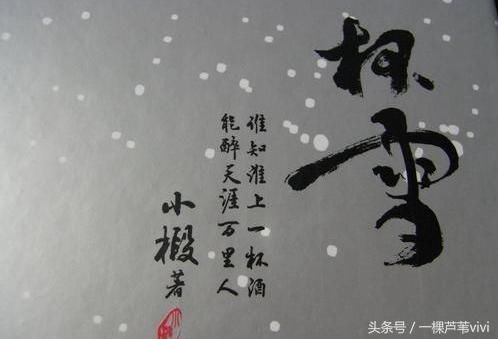 杯雪
谁知淮上一杯酒
能醉天涯万里人
小椴著
头条号／一棵芦苇vivi